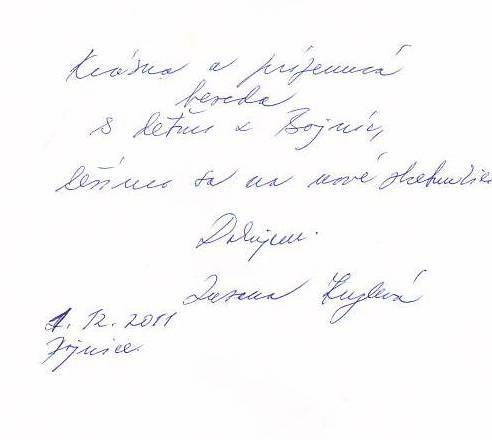 Krásna a príjemná
beseda
s deťmi z Bojníc,
tešíme sa na nové stretnutie
Ďakujem.
Zuzana
1. 12. 2011
Bojnice.